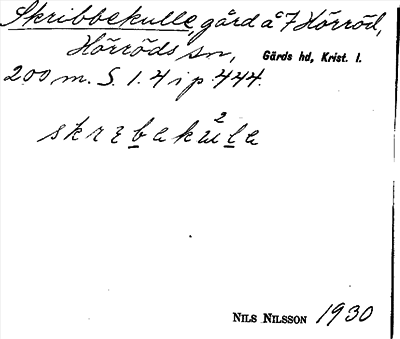 Skribbekulle, gård å °7 Hörröd,
Hörröds sn, Gärds hd, Krist. l.
200 m. S. 1. 4 i p. 444.
NILS NILSSON 1930